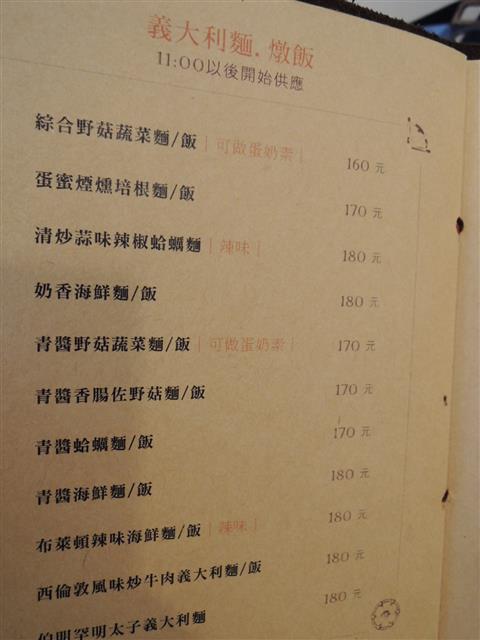 義大利麵.燉飯
11:00以後開始供應
綜合野菇蔬菜麵/飯｜可做蛋奶素｜ 160 元
蛋蜜煙燻培根麵/飯 170 元
清炒蒜味辣椒蛤蠣麵｜辣味｜ 180 元
奶香海鮮麵/飯 180 元
青醬野菇蔬菜麵/飯｜可做蛋奶素｜ 170 元
青醬香腸佐野菇麵/飯 170 元
青醬蛤蠣麵/飯 170 元
青醬海鮮麵/飯 180 元
布萊頓辣味海鮮麵/飯｜辣味｜ 180 元
西倫敦風味炒牛肉義大利麵/飯 180 元
伯明罕明太子義大利麵 180 元